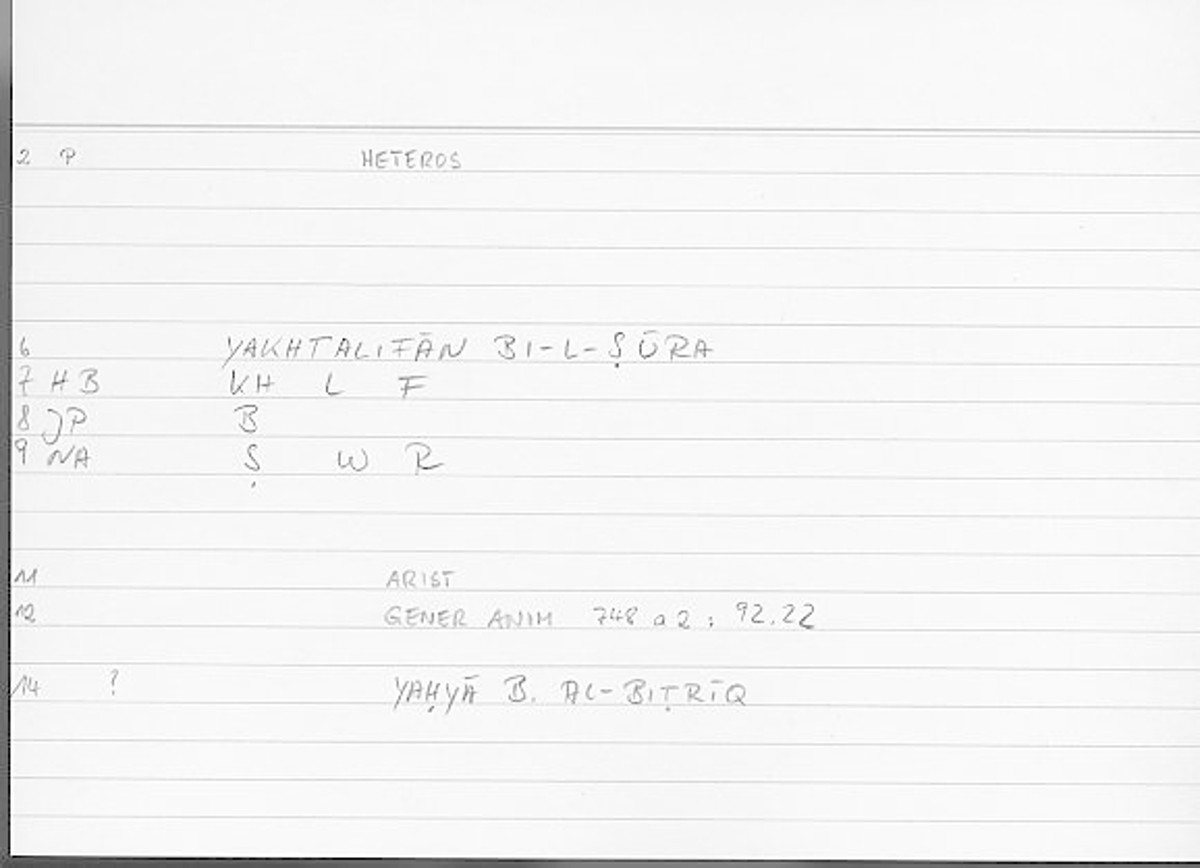 2 P HETEROS
6 YAKHTALIFĀN BI-L-ṢŪRA
7 HB KH L F
8 JP B
9 NA Ṣ W R
11 ARIST
12 GENER ANIM 748 a 2 : 92.22
14 ? YAḤYĀ B. AL-BIṬRĪQ